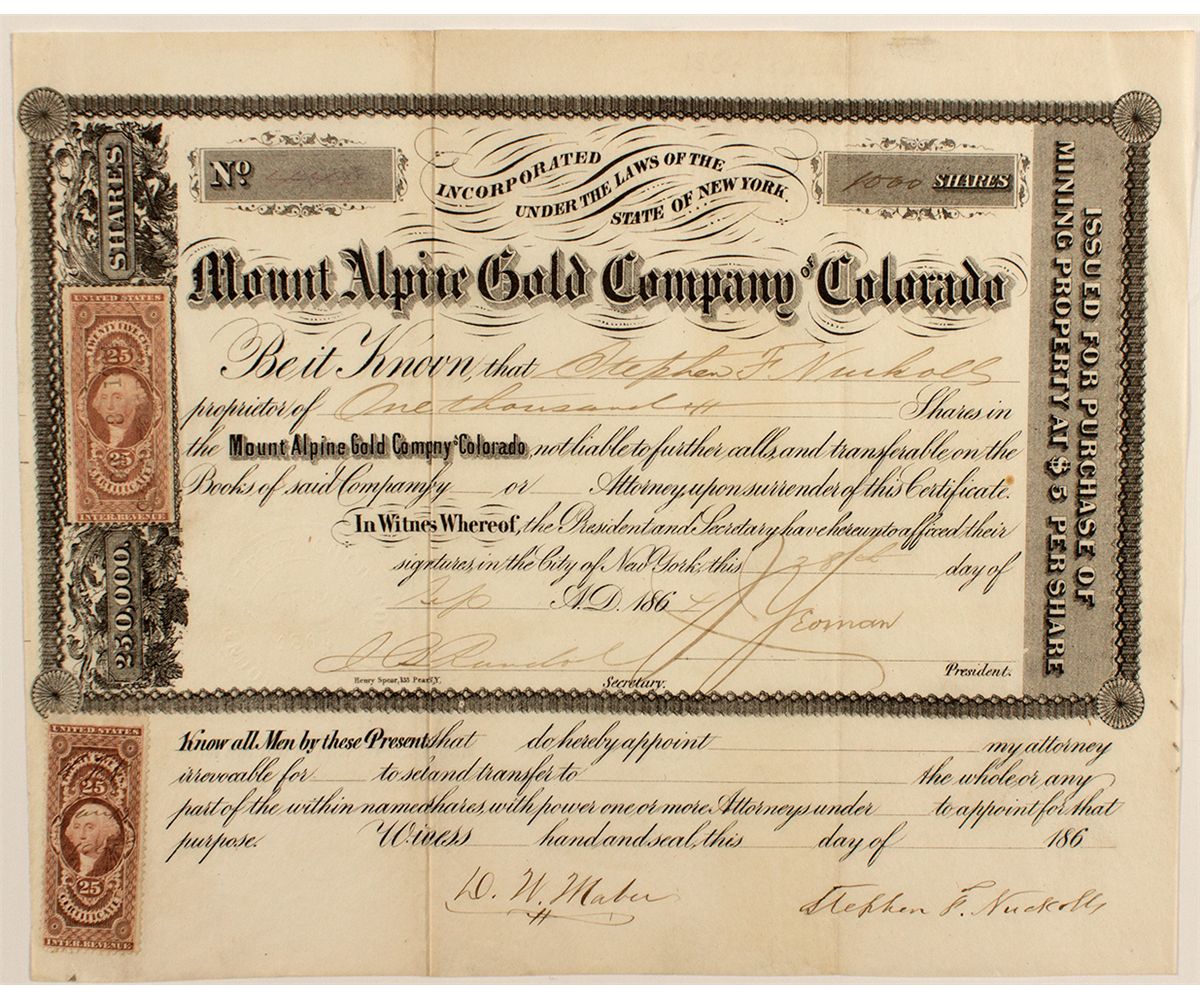 SHARES
250,000.
UNITED STATES
TWENTY FIVE CTS
25
25
CERTIFICATE
INTER. REVENUE
No.
INCORPORATED
UNDER THE LAWS OF THE
STATE OF NEW YORK.
1000 SHARES
Mount Alpine Gold Company of Colorado
Be it Known, that Stephen F. Nuckolls
propridor of One thousand Shares in
the Mount Alpine Gold Compny of Colorado, not liable to further calls, and transferable on the
Books of said Company y or Attorney, upon surrender of this Certificate.
In Witnes Whereof, the President and Secretary have hereunto affixed their
signtures, in the City of New York, this 28th day of
Sep A.D. 1864
Yeoman
President.
Henry Spear, 135 Pearl
Secretary.
ISSUED FOR PURCHASE OF
MINING PROPERTY AT $5 PER SHARE
UNITED STATES
25
25
CERTIFICATE
INTER. REVENUE
Know all Men by these Present that do hereby appoint my attorney
irrevocable for to sel and transfer to the whole, or any
part of the within named shares, with power one or more Attorneys under to appoint for that
purpose. Witness hand and seal, this day of 186
D. W. Maber
Stephen F. Nuckolls